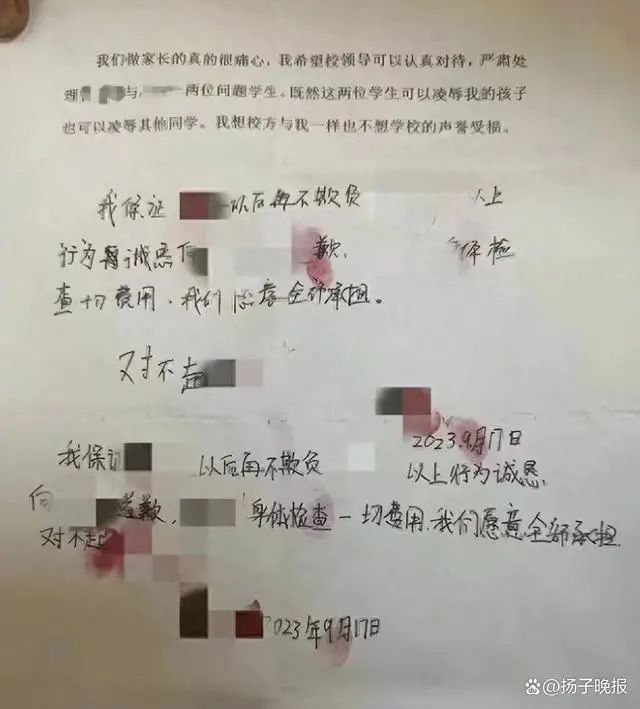 我们做家长的真的很痛心，我希望校领导可以认真对待，严肃处
理 与 两位问题学生。既然这两位学生可以凌辱我的孩子
也可以凌辱其他同学。我想校方与我一样也不想学校的声誉受损。
我保证 以后再不欺负 以上
行为 诚恳 歉, 体检
查一切费用，我们 意全部承担。
对不起
2023.9月17日
我保证 以后再不欺负 以上行为诚恳
向 道歉， 身体检查一切费用，我们愿意全部承担
对不起
2023年9月17日
@扬子晚报